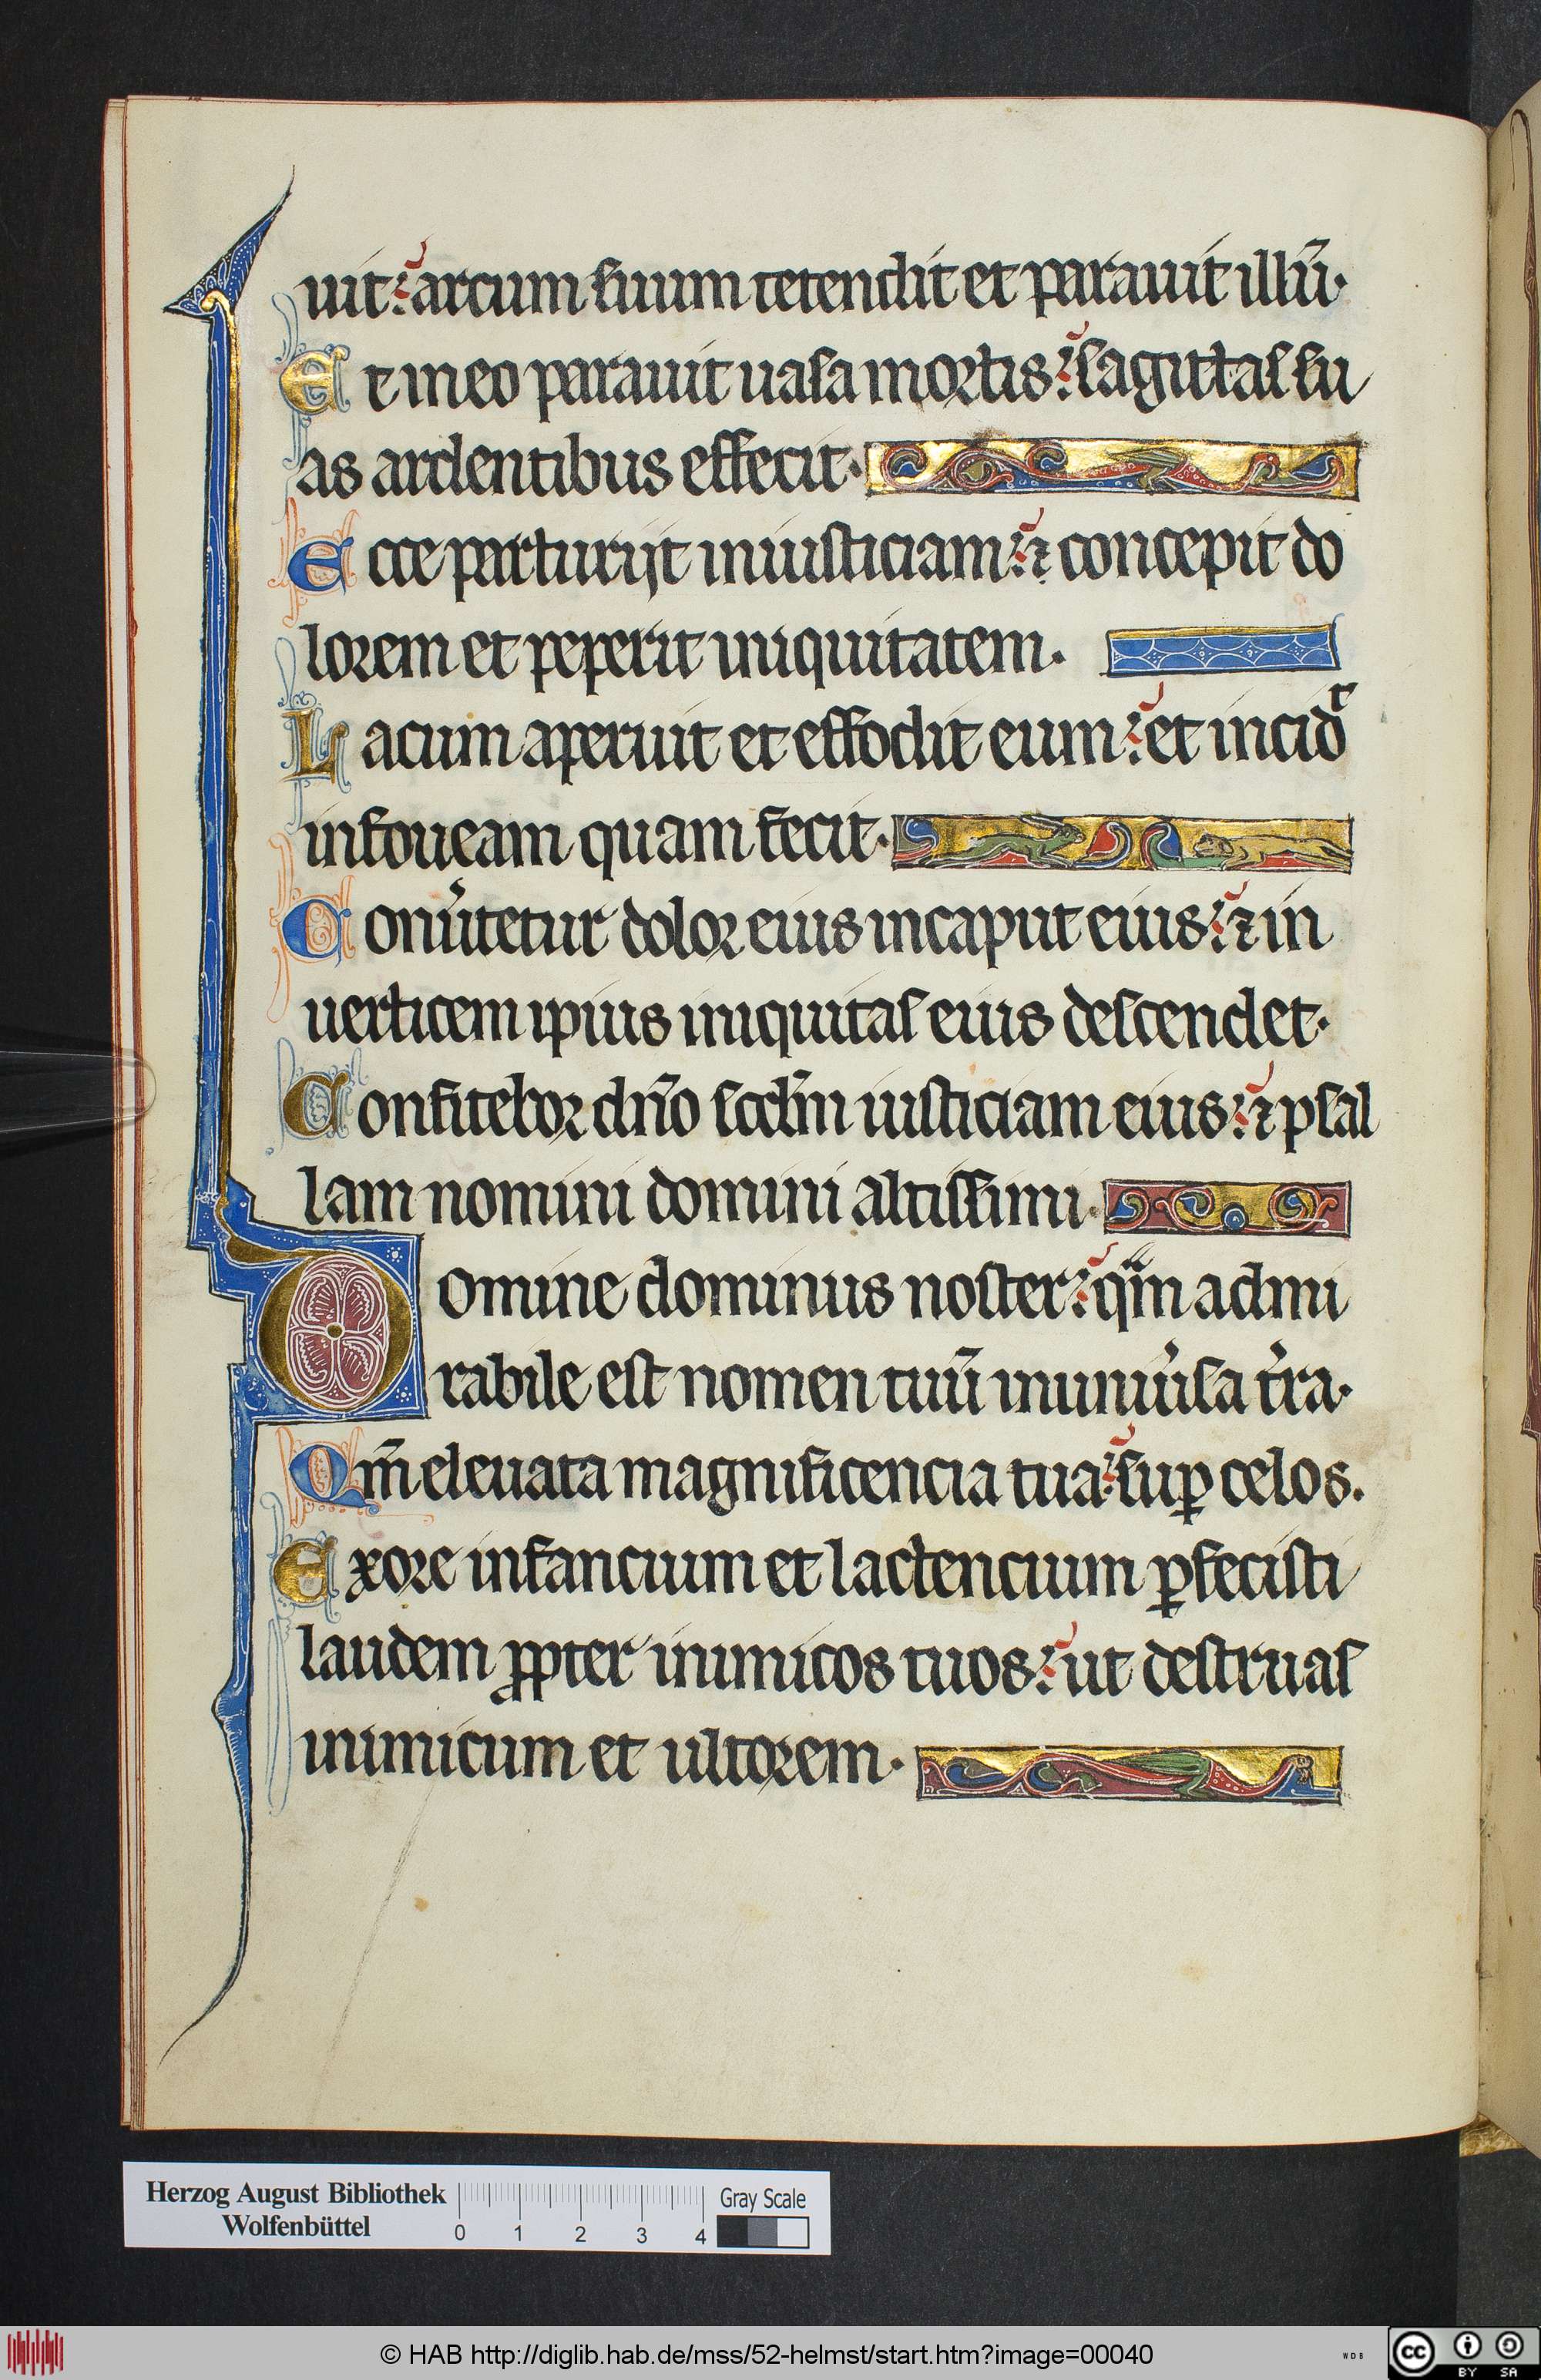 uit: arcum suum tetendit et parauit illū.
Et in eo parauit uasa mortis: sagittas su
as ardentibus effecit.
Ecce parturijt iniusticiam: ⁊ concepit do
lorem et peperit iniquitatem.
Lacum aperuit et effodit eum: et incidᵗ
in foueam quam fecit.
Conu͛tetur dolor eius in caput eius: ⁊ in
uerticem ip̄ius iniquitas eius descendet.
Confitebor dn̄o scd̄m iusticiam eius: ⁊ psal
lam nomini domini altissimi.
Domine dominus noster: qm̄ admi
rabile est nomen tuū in uniu͛sa t͛ra.
Qm̄ eleuata magnificencia tua: suꝑ celos.
Ex ore infancium et lactencium ꝑfecisti
laudem ꝓpter inimicos tuos: ut destruas
inimicum et ultorem.
Herzog August Bibliothek
Wolfenbüttel
0 1 2 3 4
Gray Scale
© HAB http://diglib.hab.de/mss/52-helmst/start.htm?image=00040
WDB
cc BY SA